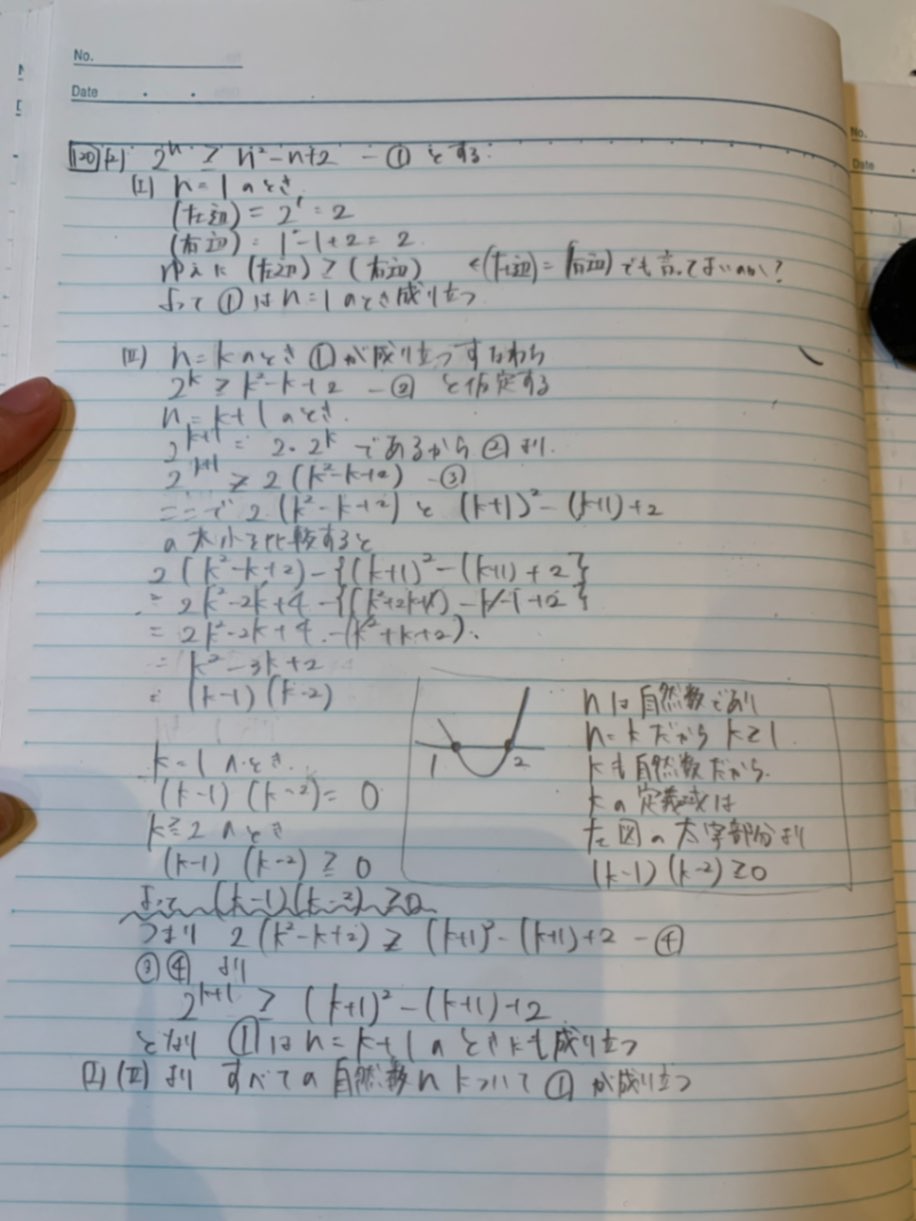 No.
Date
120 (2) 2^n ≧ n²-n+2 -① とする.
(I) n=1のとき
(左辺) = 2^1 = 2
(右辺) = 1²-1+2 = 2
ゆえに (左辺) ≧ (右辺) ←(左辺)=(右辺)でも言ってよいのか?
よって ① は n=1のとき成り立つ
(II) n=kのとき ①が成り立つ すなわち
2^k ≧ k²-k+2 -② と仮定する
n=k+1のとき.
2^{k+1} = 2・2^k であるから ②より.
2^{k+1} ≧ 2(k²-k+2) -③
ここで 2(k²-k+2) と (k+1)²-(k+1)+2
の大小を比較すると
2(k²-k+2)-{(k+1)²-(k+1)+2}
= 2k²-2k+4-{(k²+2k+1)-k-1+2}
= 2k²-2k+4-(k²+k+2).
= k²-3k+2
= (k-1)(k-2)
k=1のとき.
(k-1)(k-2)=0
k≧2のとき
(k-1)(k-2)≧0
1 2
nは自然数であり
n=kだから k≧1
kも自然数だから.
kの定義域は
左図の太字部分より
(k-1)(k-2)≧0
よって (k-1)(k-2)≧0
つまり 2(k²-k+2) ≧ (k+1)²-(k+1)+2 -④
③④より
2^{k+1} ≧ (k+1)²-(k+1)+2
となり ①はn=k+1のときにも成り立つ
(I)(II)より すべての自然数nについて①が成り立つ
No.
Date